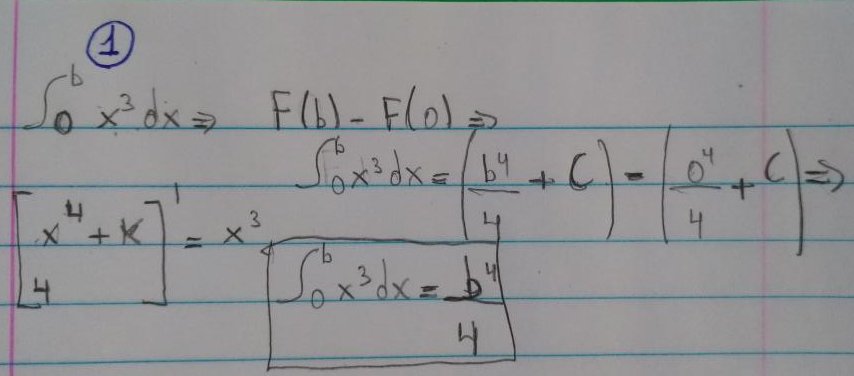 1
∫₀ᵇ x³ dx ⇒ F(b) - F(0) ⇒
∫₀ᵇ x³ dx = (b⁴/4 + C) - (0⁴/4 + C) ⇒
[x⁴/4 + K]' = x³
∫₀ᵇ x³ dx = b⁴/4